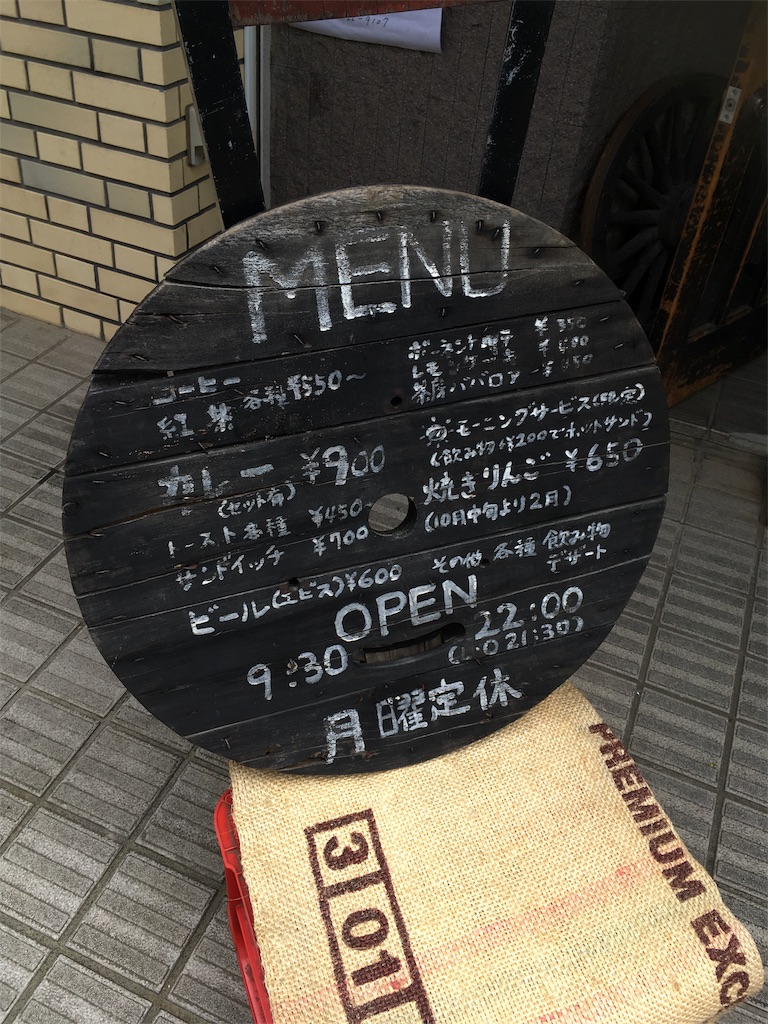 MENU
コーヒー
紅茶 各種 ¥550～
レモンケーキ
ババロア
モーニングサービス
(飲み物+¥200でホットサンド)
カレー ¥900
(セット有)
焼きりんご ¥650
(10月中旬より2月)
トースト各種 ¥450~
サンドイッチ ¥700
その他 各種 飲み物
デザート
ビール(エビス)¥600
OPEN
9:30 22:00
(L.O 21:30)
月曜定休
PREMIUM EXC
3 01